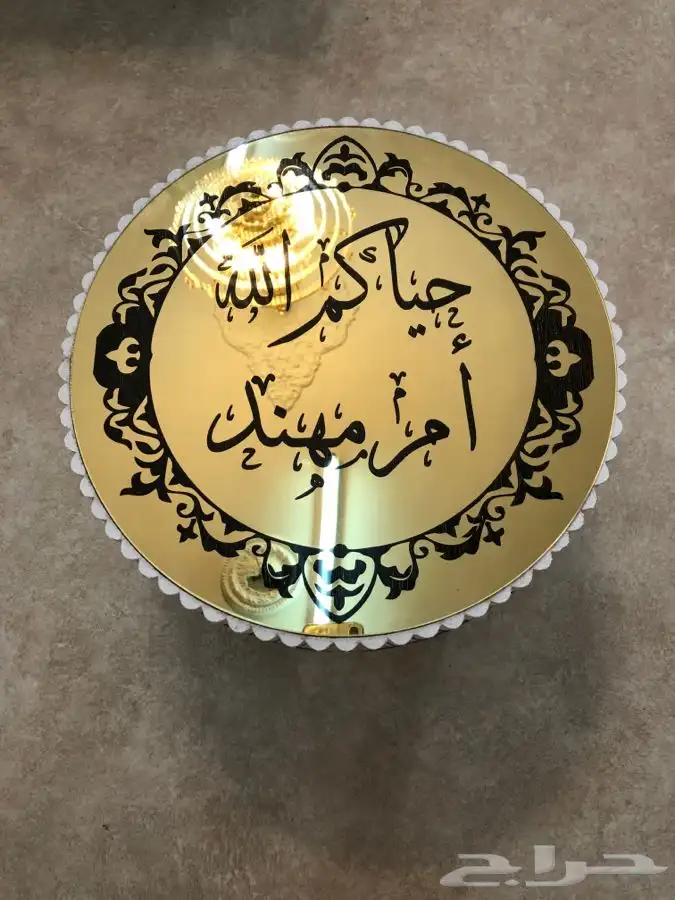 حياكم الله
أم مهند
حراج